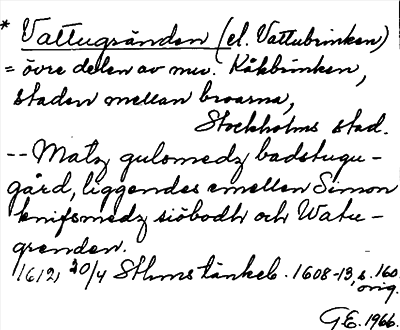 * Vattugränden (el. Vattubrinken)
= övre delen av nuv. Kåkbrinken,
staden mellan broarna,
Stockholms stad.
-- Matz gulsmedz badstugu-
gård, liggendes emellen Simon
knifsmedz siöbodh och Watu-
grenden.
1612 30/4 Sthms tänkeb. 1608-13, s. 160
orig.
G.E. 1966.